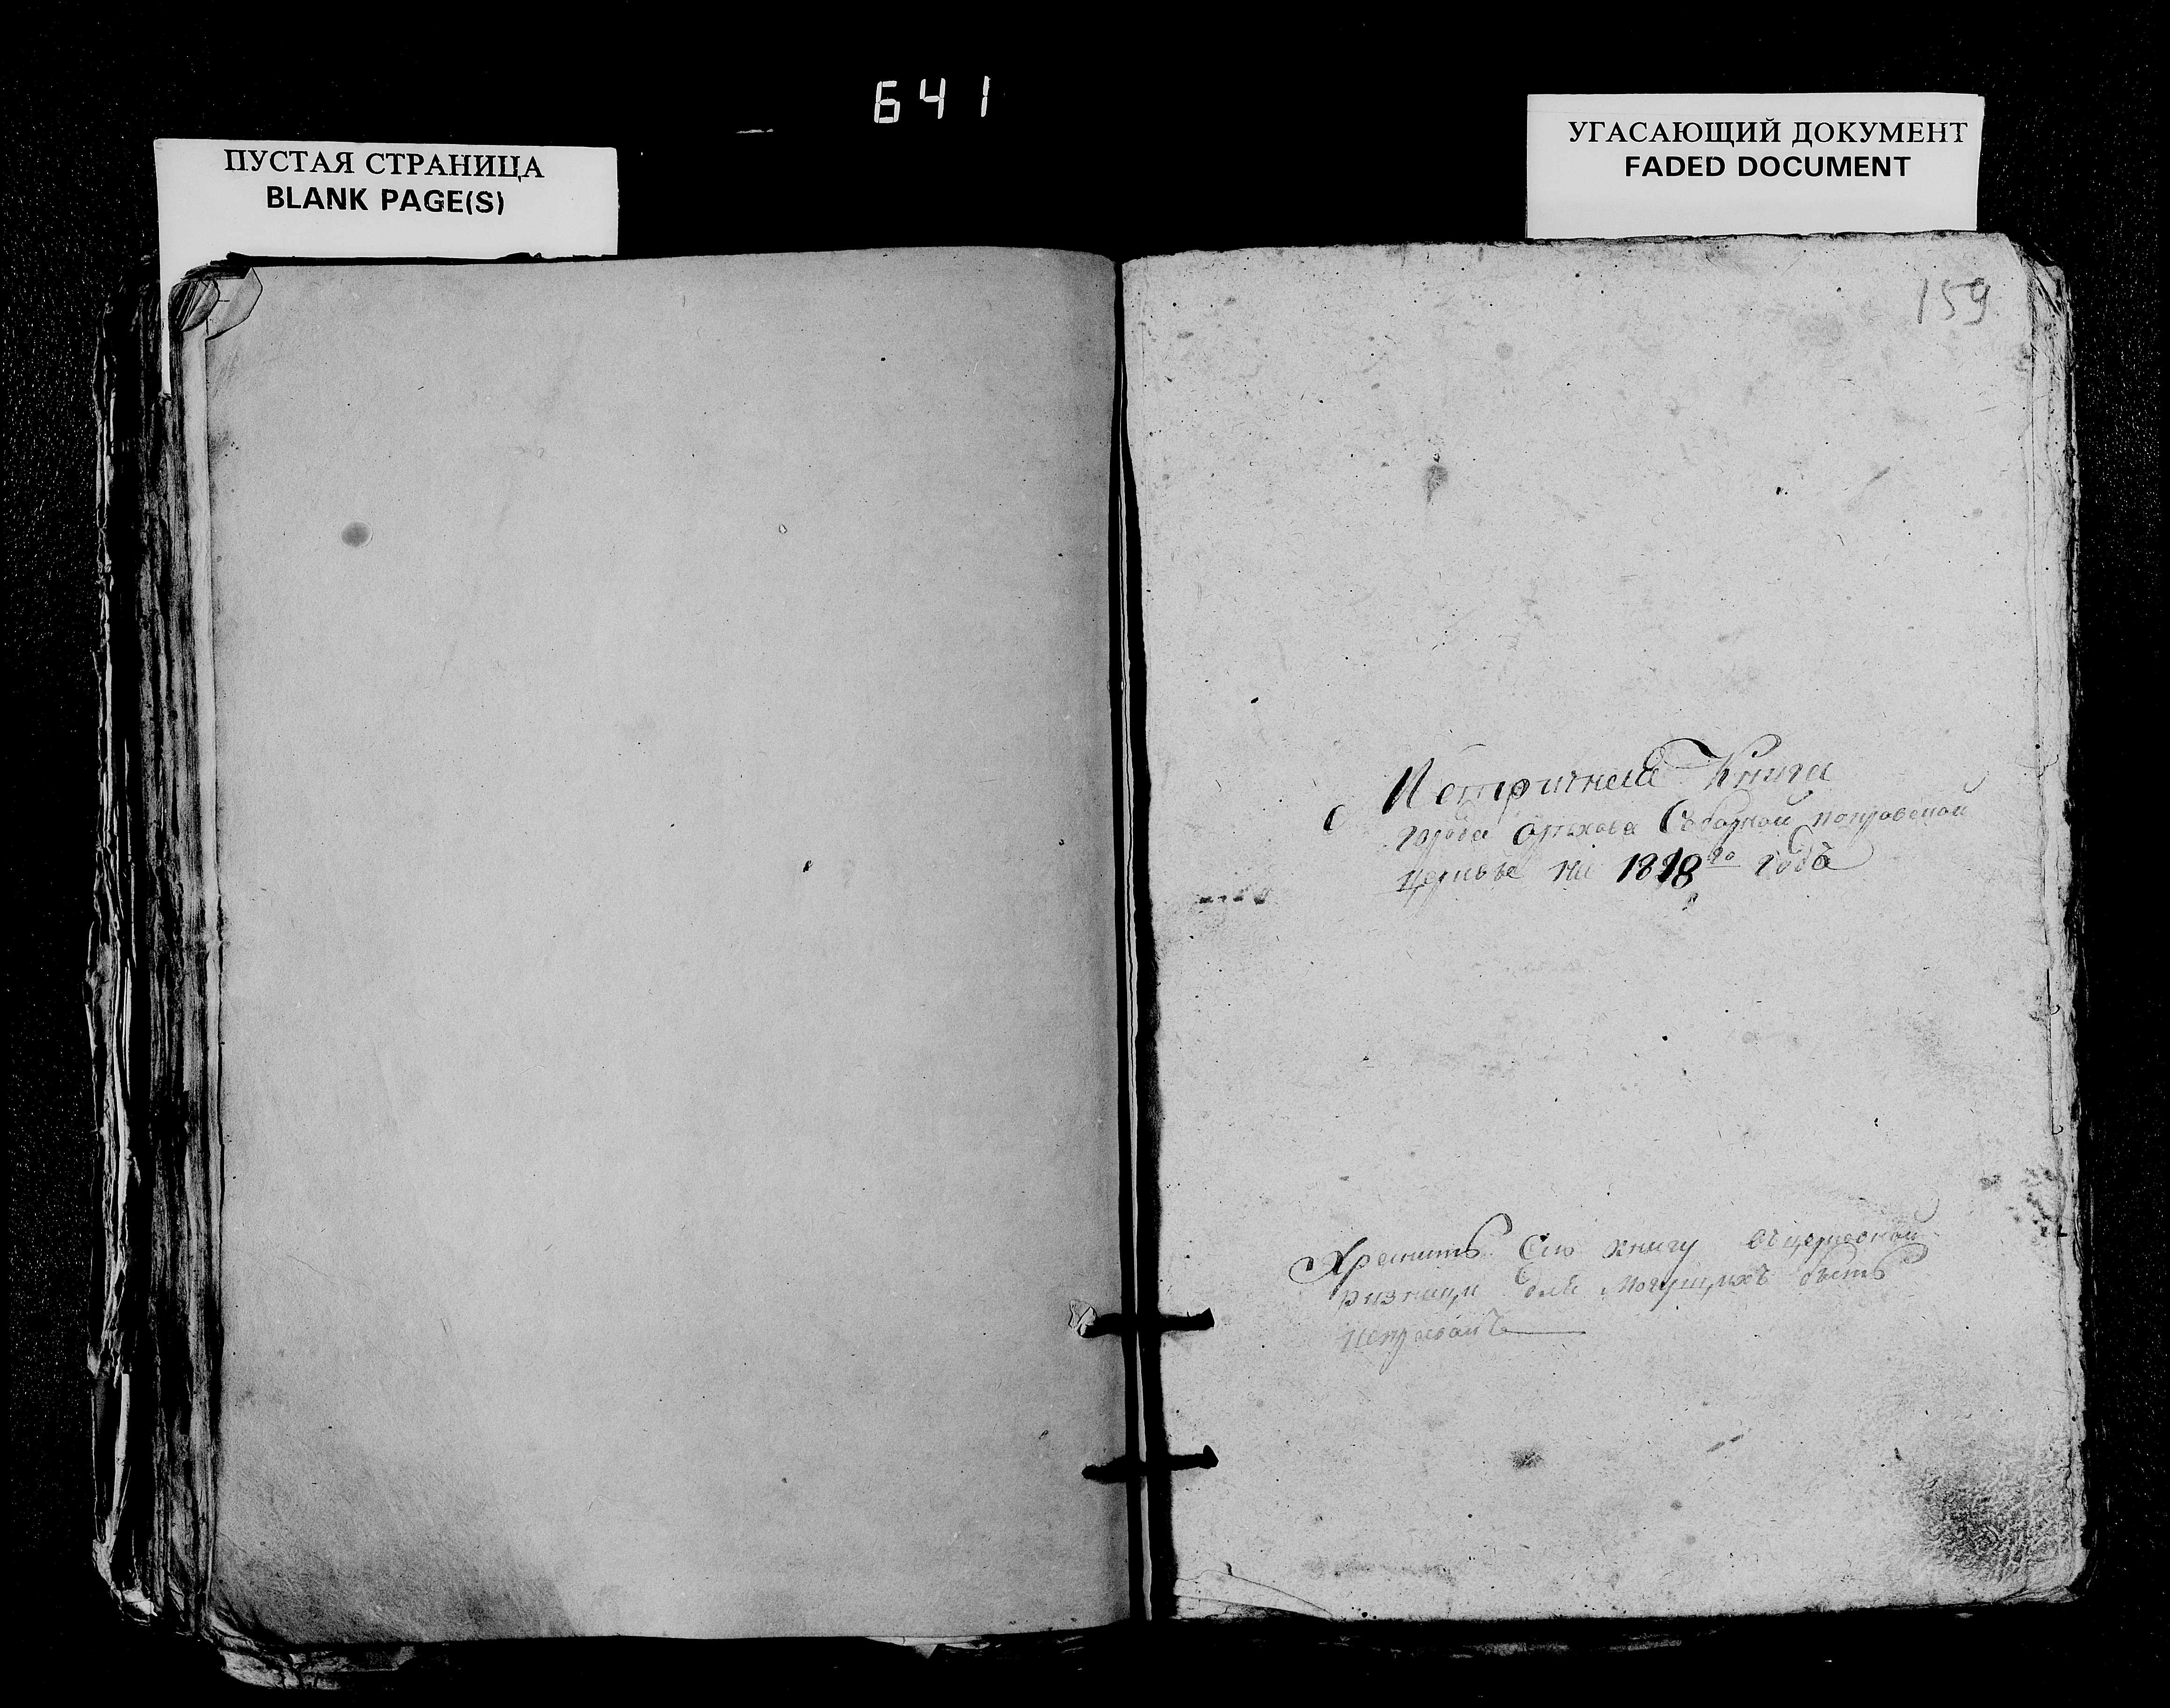 641
ПУСТАЯ СТРАНИЦА
BLANK PAGE(S)
УГАСАЮЩИЙ ДОКУМЕНТ
FADED DOCUMENT
159
Метричная Книга
города Орехова Соборной покровской
церкве на 1818го года
Хранить Сию книгу въ церковной
ризници для могущихъ быть